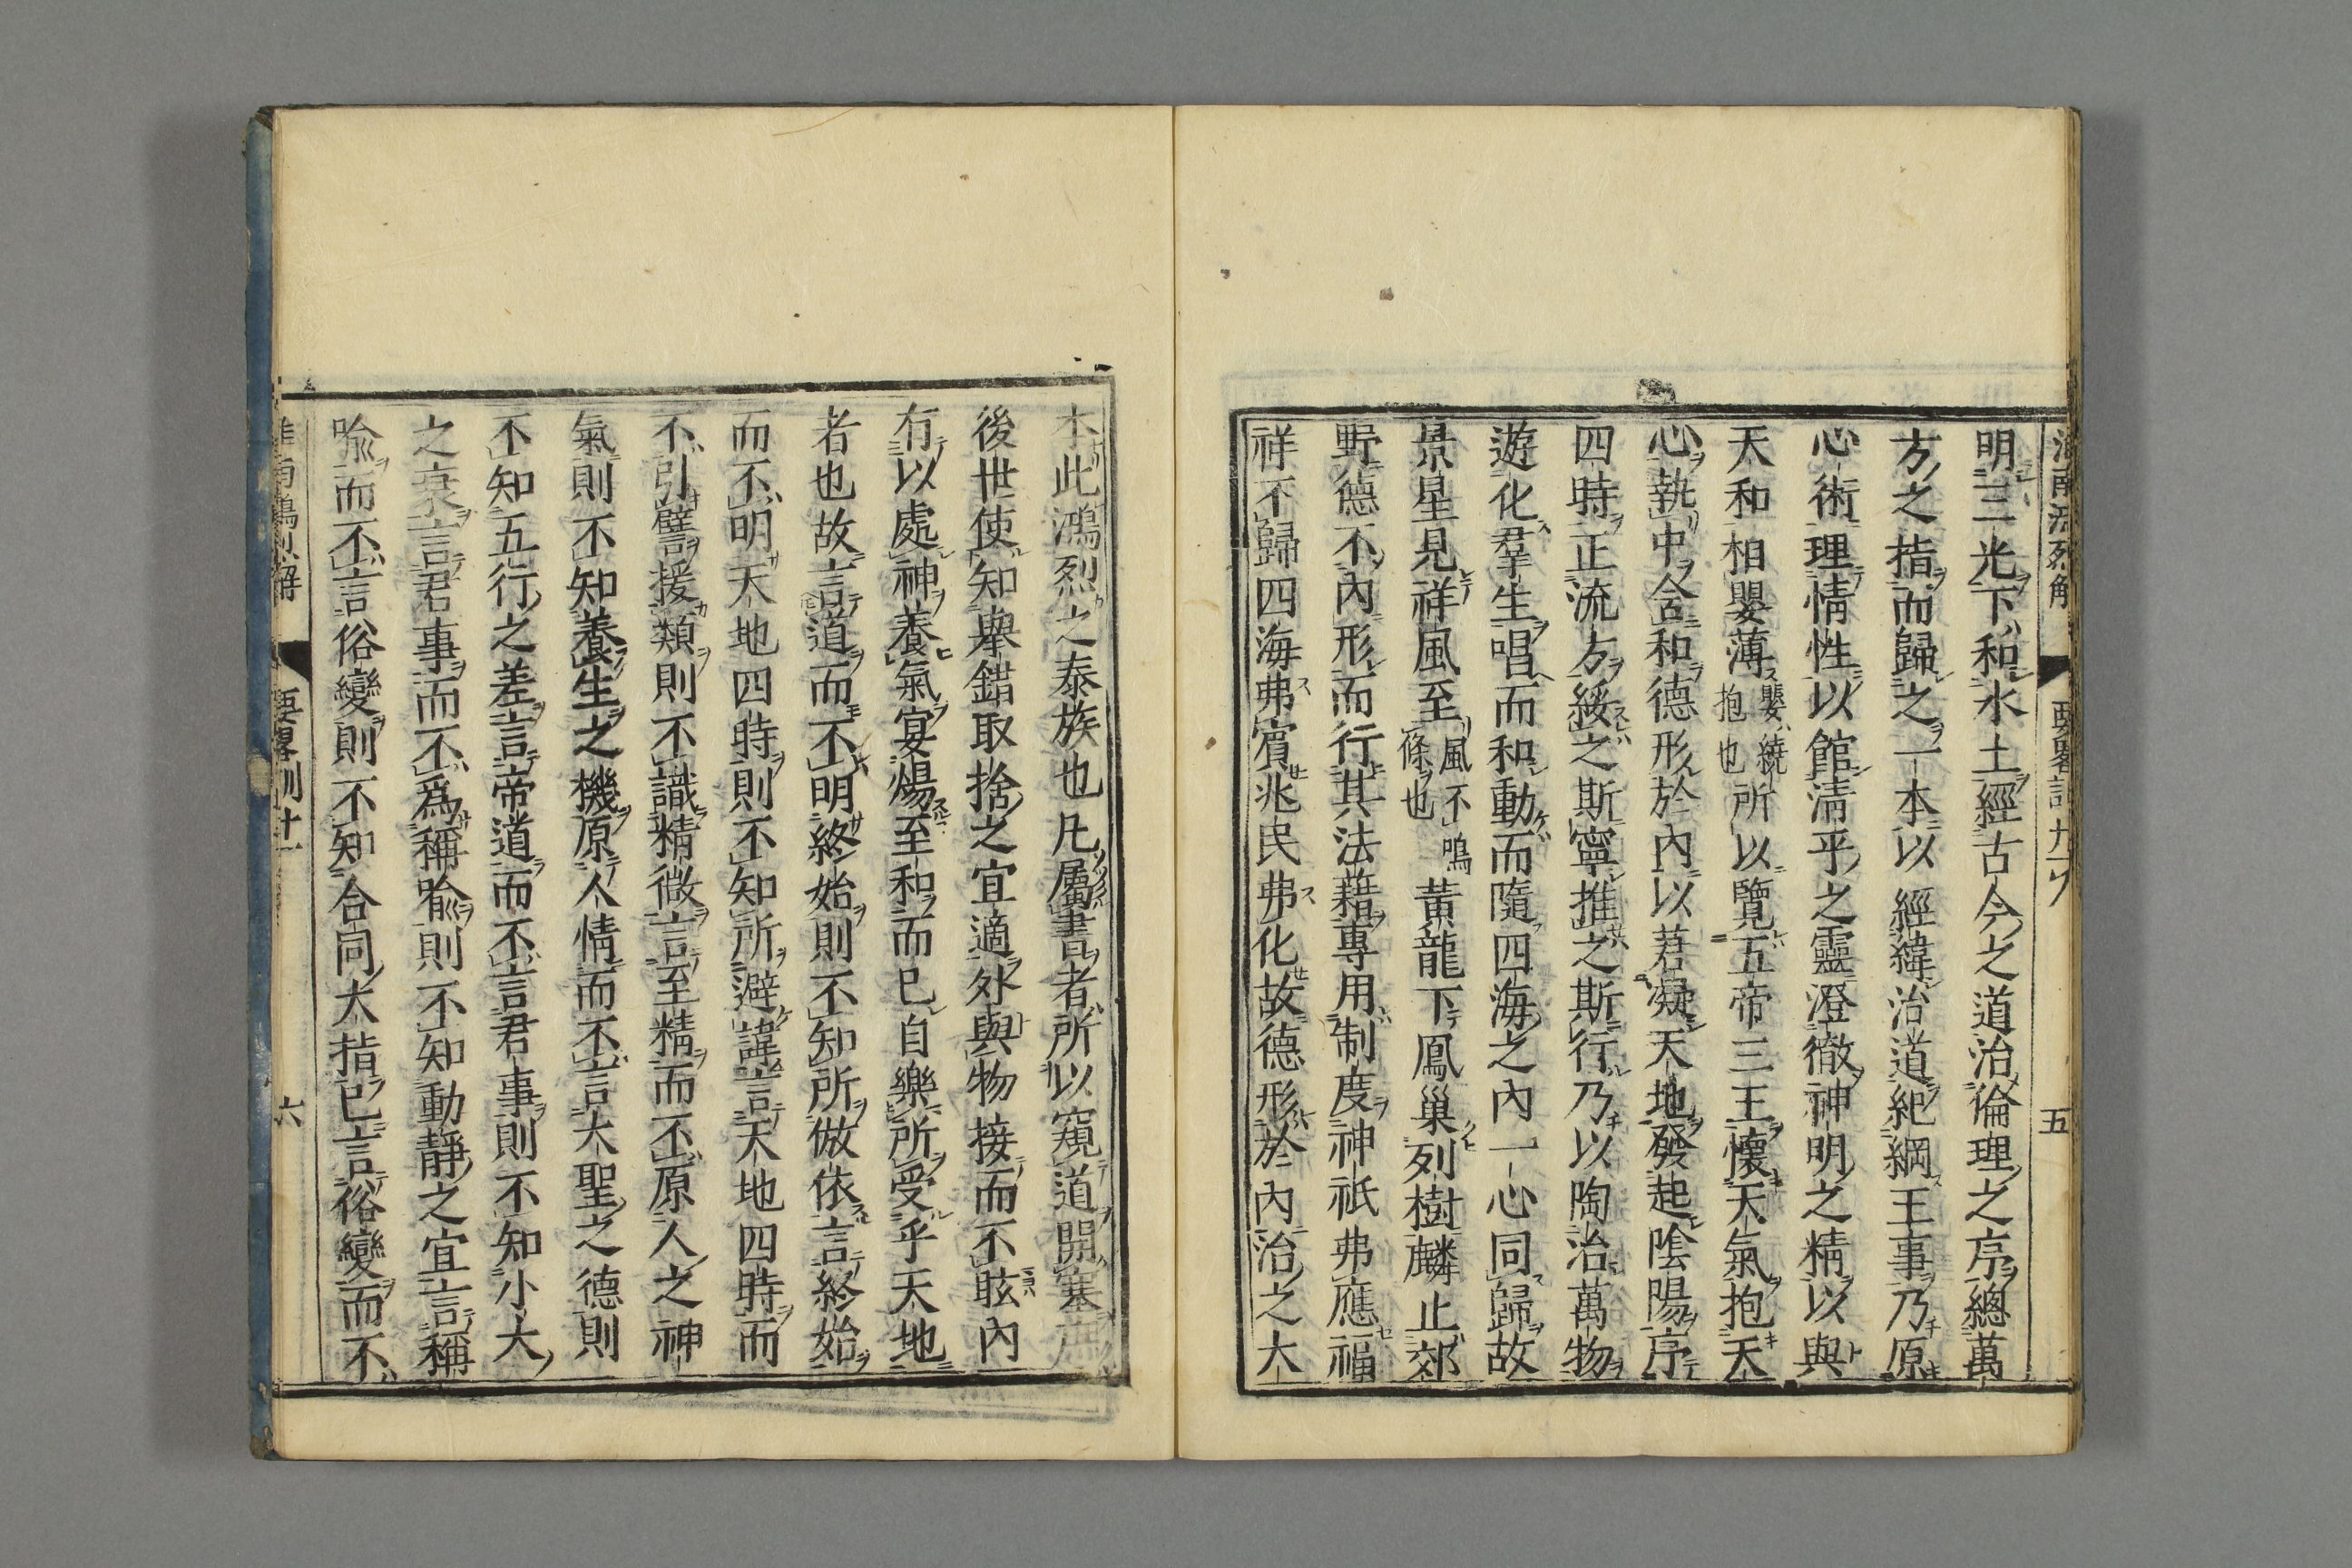 明三光下和水土經古今之道治倫理之序總萬
方之指而歸之一本以經緯治道紀綱王事乃原
心術理情性以館清平之靈澄徹神明之精以與
天和相嬰薄嬰繞抱也所以覽五帝三王懷天氣抱天
心執中含和德形於內以莙凝天地發起陰陽序
四時正流方綏之斯寧推之斯行乃以陶冶萬物
遊化羣生唱而和動而隨四海之內一心同歸故
景星見祥風至風不鳴條也黃龍下鳳巢列樹麟止郊
野德不內形而行其法藉專用制度神祇弗應福
祥不歸四海弗賓兆民弗化故德形於內治之大
五
本此鴻烈之泰族也凡屬書者所以窺道開塞庶
後世使知舉錯取捨之宜適外與物接而不眩內
有以處神養氣宴煬至和而已自樂所受乎天地
者也故言道而不明終始則不知所倣依言終始
而不明天地四時則不知所避諱言天地四時而
不引譬援類則不識精微言至精而不原人之神
氣則不知養生之機原人情而不言大聖之德則
不知五行之差言帝道而不言君事則不知小大
之衰言君事而不爲稱喻則不知動靜之宜言稱
喻而不言俗變則不知合同大指已言俗變而不
六